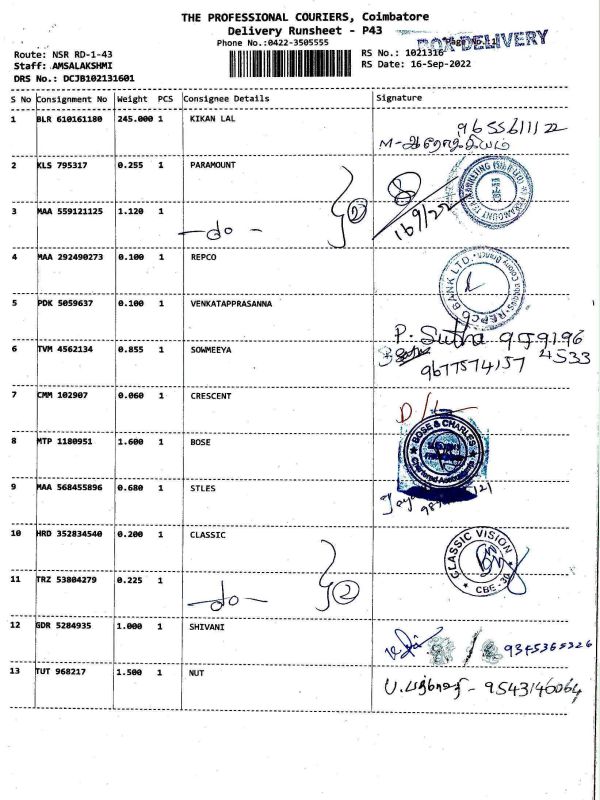 THE PROFESSIONAL COURIERS, Coimbatore
Delivery Runsheet - P43
Phone No.:0422-3505555
BOX DELIVERY
Route: NSR RD-1-43
RS No.: 1021316
Staff: AMSALAKSHMI
RS Date: 16-Sep-2022
DRS No.: DCJB102131601
S No Consignment No Weight PCS Consignee Details Signature
1 BLR 610161180 245.000 1 KIKAN LAL 9655611122
2 KLS 795317 0.255 1 PARAMOUNT
3 MAA 559121125 1.120 1 -do- 2 16/9/22
4 MAA 292490273 0.100 1 REPCO
REPCO BANK LTD.
5 PDK 5059637 0.100 1 VENKATAPPRASANNA
P. Sutha 959196
4533
6 TVM 4562134 0.855 1 SOWMEEYA 9677574157
7 CMM 102907 0.060 1 CRESCENT D/L
8 MTP 1180951 1.600 1 BOSE
BOSE & CHARLES
Chartered Accountants
9 MAA 568455896 0.680 1 STLES
10 HRD 352834540 0.200 1 CLASSIC
CLASSIC VISION
CBE - 30
11 TRZ 53804279 0.225 1 -do- 2
12 GDR 5284935 1.000 1 SHIVANI 9345365326
13 TUT 968217 1.500 1 NUT 9543146064